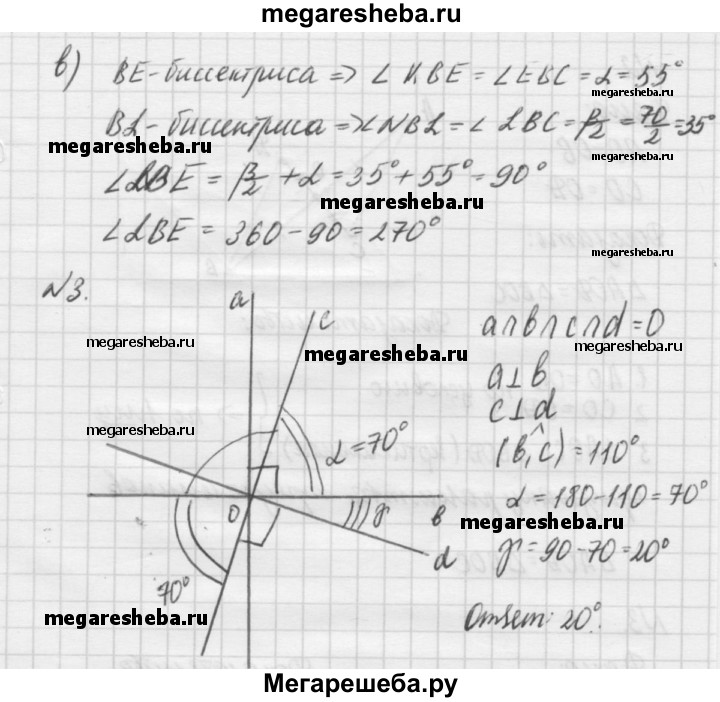 megaresheba.ru
в) BE-биссектриса => ∠KBE = ∠EBC = α = 55°
megaresheba.ru
BL-биссектриса => ∠NBL = ∠LBC = β/2 = 70/2 = 35°
megaresheba.ru
∠LBE = β/2 + α = 35° + 55° = 90°
megaresheba.ru
∠LBE = 360 - 90 = 270°
megaresheba.ru
N3.
a
c
a∩b∩c∩d = O
megaresheba.ru
megaresheba.ru
a⊥b
c⊥d
megaresheba.ru
α = 70°
(b,^c) = 110°
α = 180-110 = 70°
O
γ
b
megaresheba.ru
d
γ = 90-70 = 20°
70°
megaresheba.ru
Ответ: 20°.
megaresheba.ru
Мегарешеба.ру